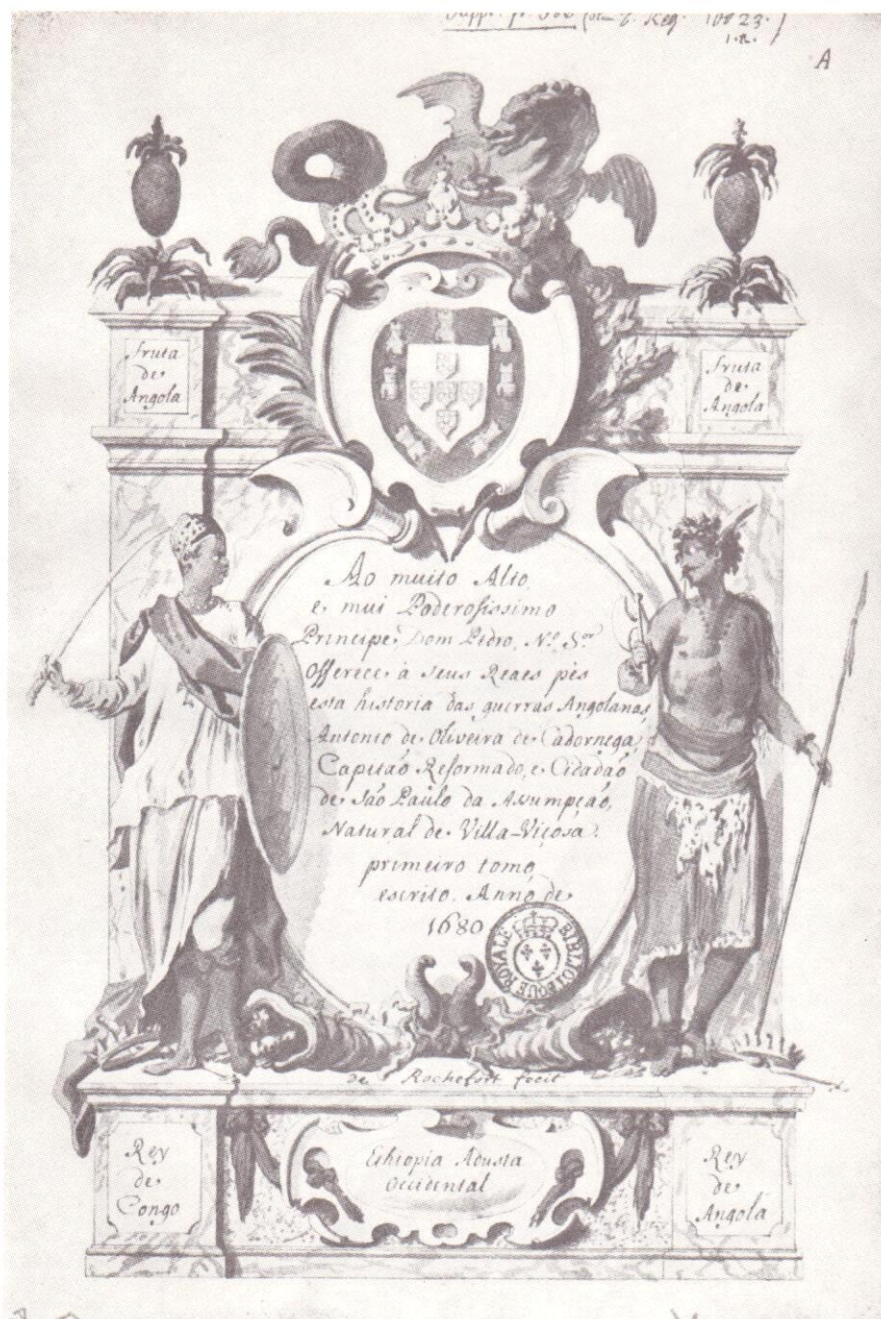 Suppl. fr. 506 (olim C. Reg. 10023.)
1.2.
A
fruta
de
Angola
fruta
de
Angola
Ao muito Alto,
e mui Poderosissimo
Principe, Dom Pedro, N.º S.ºr
Offerece à seus Reaes pès
esta historia das guerras Angolanas,
Antonio de Oliveira de Cadornega,
Capitaõ Reformado, e Cidadaõ
de Saõ Paulo da Assumpçaõ,
Natural de Villa-Viçosa.
primeiro tomo,
escrito. Anno de
1680
BIBLIOTEQUE ROYALE
de Rochefort fecit
Rey
de
Congo
Ethiopia Adusta
Occidental
Rey
de
Angola